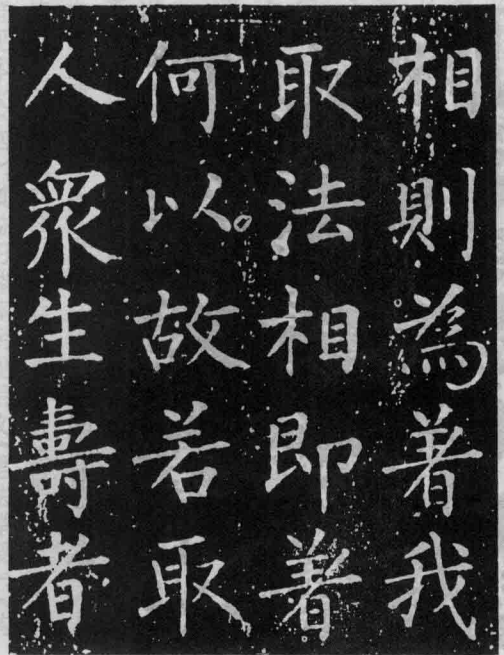 相則為著我
取法相即著
何以故若取
人眾生壽者